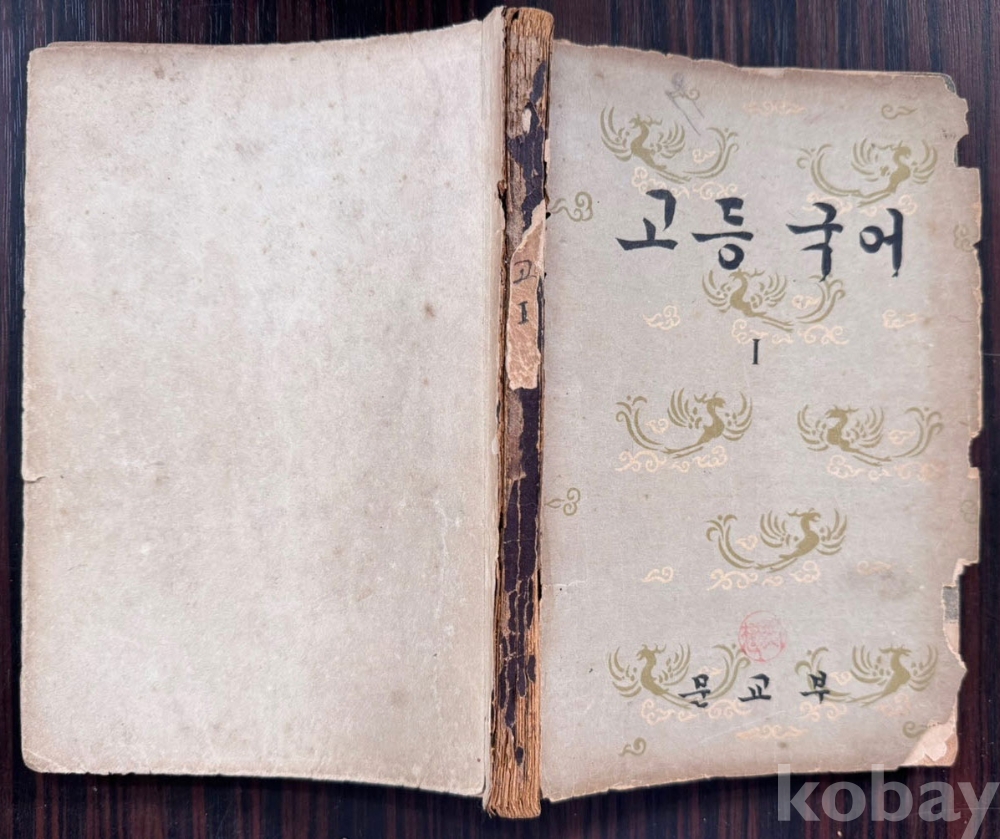 고등 국어
I
문교부
고
I
kobay